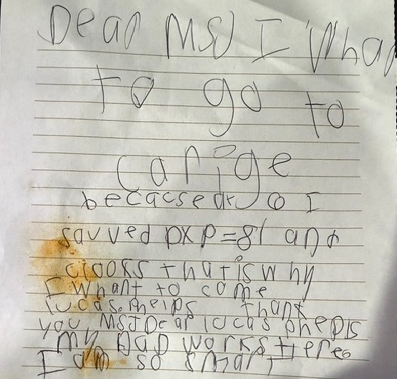 Dear MSJ I Whant
to go to
carige
becacse
savved pxp=81 and
clocks that is why
I whant to come
lucas. Phelps Thank
you MSJ Dear lucas phepls
My Dad works there
I am so smart